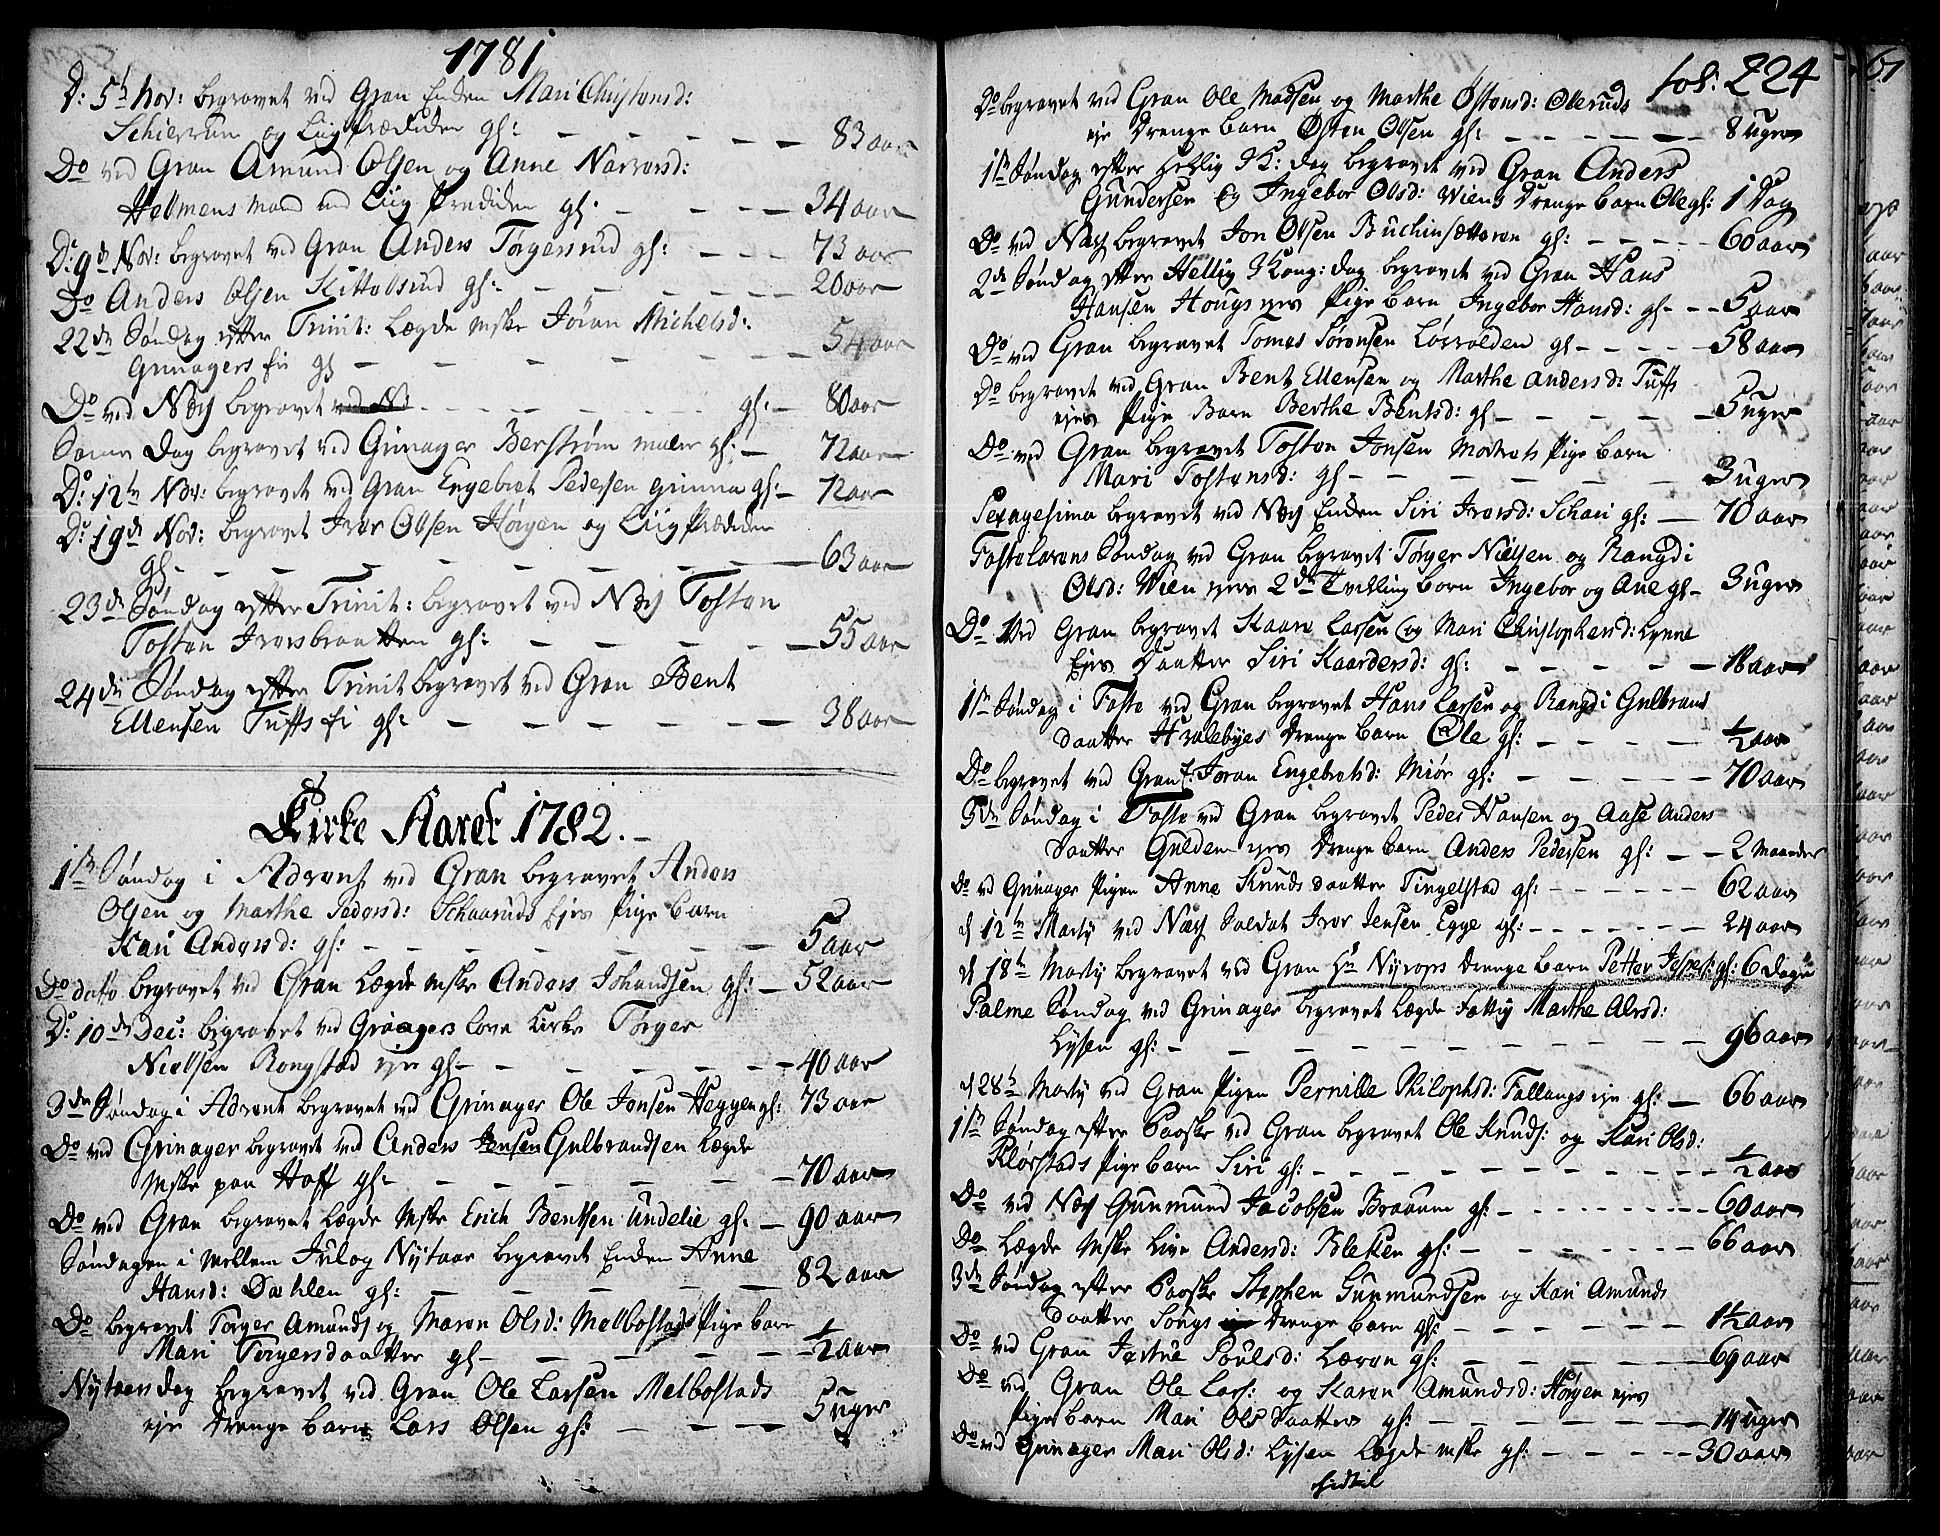 1781
D: 5t Nov: begravet ved Gran Enken Mari Christensd:
Schierrum og Liig Prædiken gl: — 83 aar
Do ved Gran Amund Olsen og Anne Narversd:
Helmens Mand med Liig Prædiken gl: — 34 aar
D: 9de Nov: begravet ved Gran Anders Torgersrud gl: — 73 aar
Do Anders Olsen Kittelsrud gl: — 20 aar
22de Søndag efter Trinit: Lægde Mske Jøran Michelsd:
Grinagers Ei gl — 54 aar
Do ved Næs begravet ved N — gl: — 80 aar
Samme Dag begravet ved Grinager Berstrøm maler gl: — 72 aar
D: 12te Nov: begravet ved Gran Engebret Pedersen Grinna gl: — 72 aar
D: 19de Nov: begravet Iver Olsen Hørgen og Liig Prædiken
gl. — 63 aar
23de Søndag efter Trinit: begravet ved Næs Tosten
Tosten Iversbraatten gl: — 55 aar
24de Søndag efter Trinit begravet ved Gran Bent
Ellensen Tuffs Ei gl: — 38 aar
Kirke Aaret 1782.
1ste Søndag i Advent ved Gran begravet Anders
Olsen og Marthe Pedersd: Schaaruds Ejes Pige Barn
Kari Andersd: gl: — 5 aar
Do ditto begravet ved Gran Lægde Mske Anders Johandsen gl: — 52 aar
D: 10de Dec: begravet ved Grinagers Kirke Torger
Nielsen Rongstad eje gl — 40 aar
3de Søndag i Advent begravet ved Grinager Ole Jonsen Heggen gl: 73 aar
Do ved Grinager begravet ved Anders Jensen Gulbrandsen Lægde
Mske paa Hoff gl: — 70 aar
Do ved Gran begravet Lægde Mske Erich Bentsen Undelie gl: — 90 aar
Søndagen i mellem Jul og Nytaar begravet Enken Anne
Hansd: Dæhlen gl: — 82 aar
Do begravet Torger Amunds og Maren Olsd: Melbostads Pige Barn
Mari Torgersdaatter gl — ½ aar
Nytaars Dag begravet ved Gran Ole Larsen Melbostads
eje Drenge Barn Lars Olsen gl: — 5 uger
fol: 224
Do begravet ved Gran Ole Madsen og Marthe Østensd: Oleruds
eje Drenge Barn Østen Olsen gl: — 8 uger
1ste Søndag efter Hellig 3 K: Dag begravet ved Gran Anders
Gundersen og Ingebor Olsd: Wiens Drenge Barn Ole gl: 1 Dag
Do ved Næs begravet Jon Olsen Buchinsætteren gl: — 60 aar
2de Søndag efter Hellig 3 Kong: Dag begravet ved Gran Hans
Hansen Hougs ejes Pige Barn Ingebor Hansd: gl — 5 aar
Do ved Gran begravet Tomas Sørensen Lørvolden gl — 58 aar
Do begravet ved Gran Bent Ellensen og Marthe Andersd: Tuffs
ejes Pige Barn Berthe Bentsd: gl — 5 uger
Do ved Gran begravet Tosten Jonsen Pige Barn
Mari Tostensd: gl — 3 uger
Sexagesima begravet ved Næs Enken Siri Iversd: Schari gl: — 70 aar
Fastelavens Søndag ved Gran begravet Torger Nielsen og Rangdi
Olsd: Wien ejes 2de Tvilling Børn Ingebor og Ane gl — 3 uger
Do Ved Gran begravet Kaare Larsen og Mari Christophersd: Lynne
Ejes Daatter Siri Kaardersd: gl: — 18 aar
1ste Søndag i Faste ved Gran begravet Hans Larsen og Rangdi Gulbrands
daatter Hvalebyes Drenge Barn Ole gl: — ½ aar
Do begravet ved Gran E: Joran Engebretsd: Miør gl: — 70 aar
3de Søndag i Faste ved Gran begravet Peder Hansen og Aase Anders
daatter Gulden ejes Drenge Barn Anders Pedersen gl: — 2 Maaneder
Do ved Grinager Pigen Anne Knudsdaatter Tingelstad gl: — 62 aar
d 12te Marty ved Næs Soldat Iver Jensen Egge gl: — 24 aar
d 18te Marty begravet ved Gran Hr Nyrops Drenge Barn Petter Jesper: gl: 6 Dage
Palme Søndag ved Grinager begravet Lægde Fattig Marthe Alvsd:
Lysen gl: — 96 aar
d 28te Marty ved Gran Pigen Pernille Philophsd: Fallangs eje gl: — 66 aar
1ste Søndag efter Paaske ved Gran begravet Ole Knuds: og Kari Olsd:
Kløvstads Pige Barn Siri gl: — ½ aar
Do ved Næs Gunmund Jacobsen Braaum gl: — 60 aar
Do Lægde Mske Live Andersd: Bleken gl: — 66 aar
3de Søndag efter Paaske Stephen Gunmundsen og Kari Amunds
daatter Songs Drenge Barn gl: — 1½ aar
Do ved Gran Jøstne Poulsd: Læren gl: — 69 aar
Do ved Gran Ole Lars: og Karen Amundsd: Hørgen ejes
Pige Barn Mari Olsdaatter gl: — 14 uger
Do ved Grinager Mari Olsd: Lysen Lægde Mske gl: — 30 aar